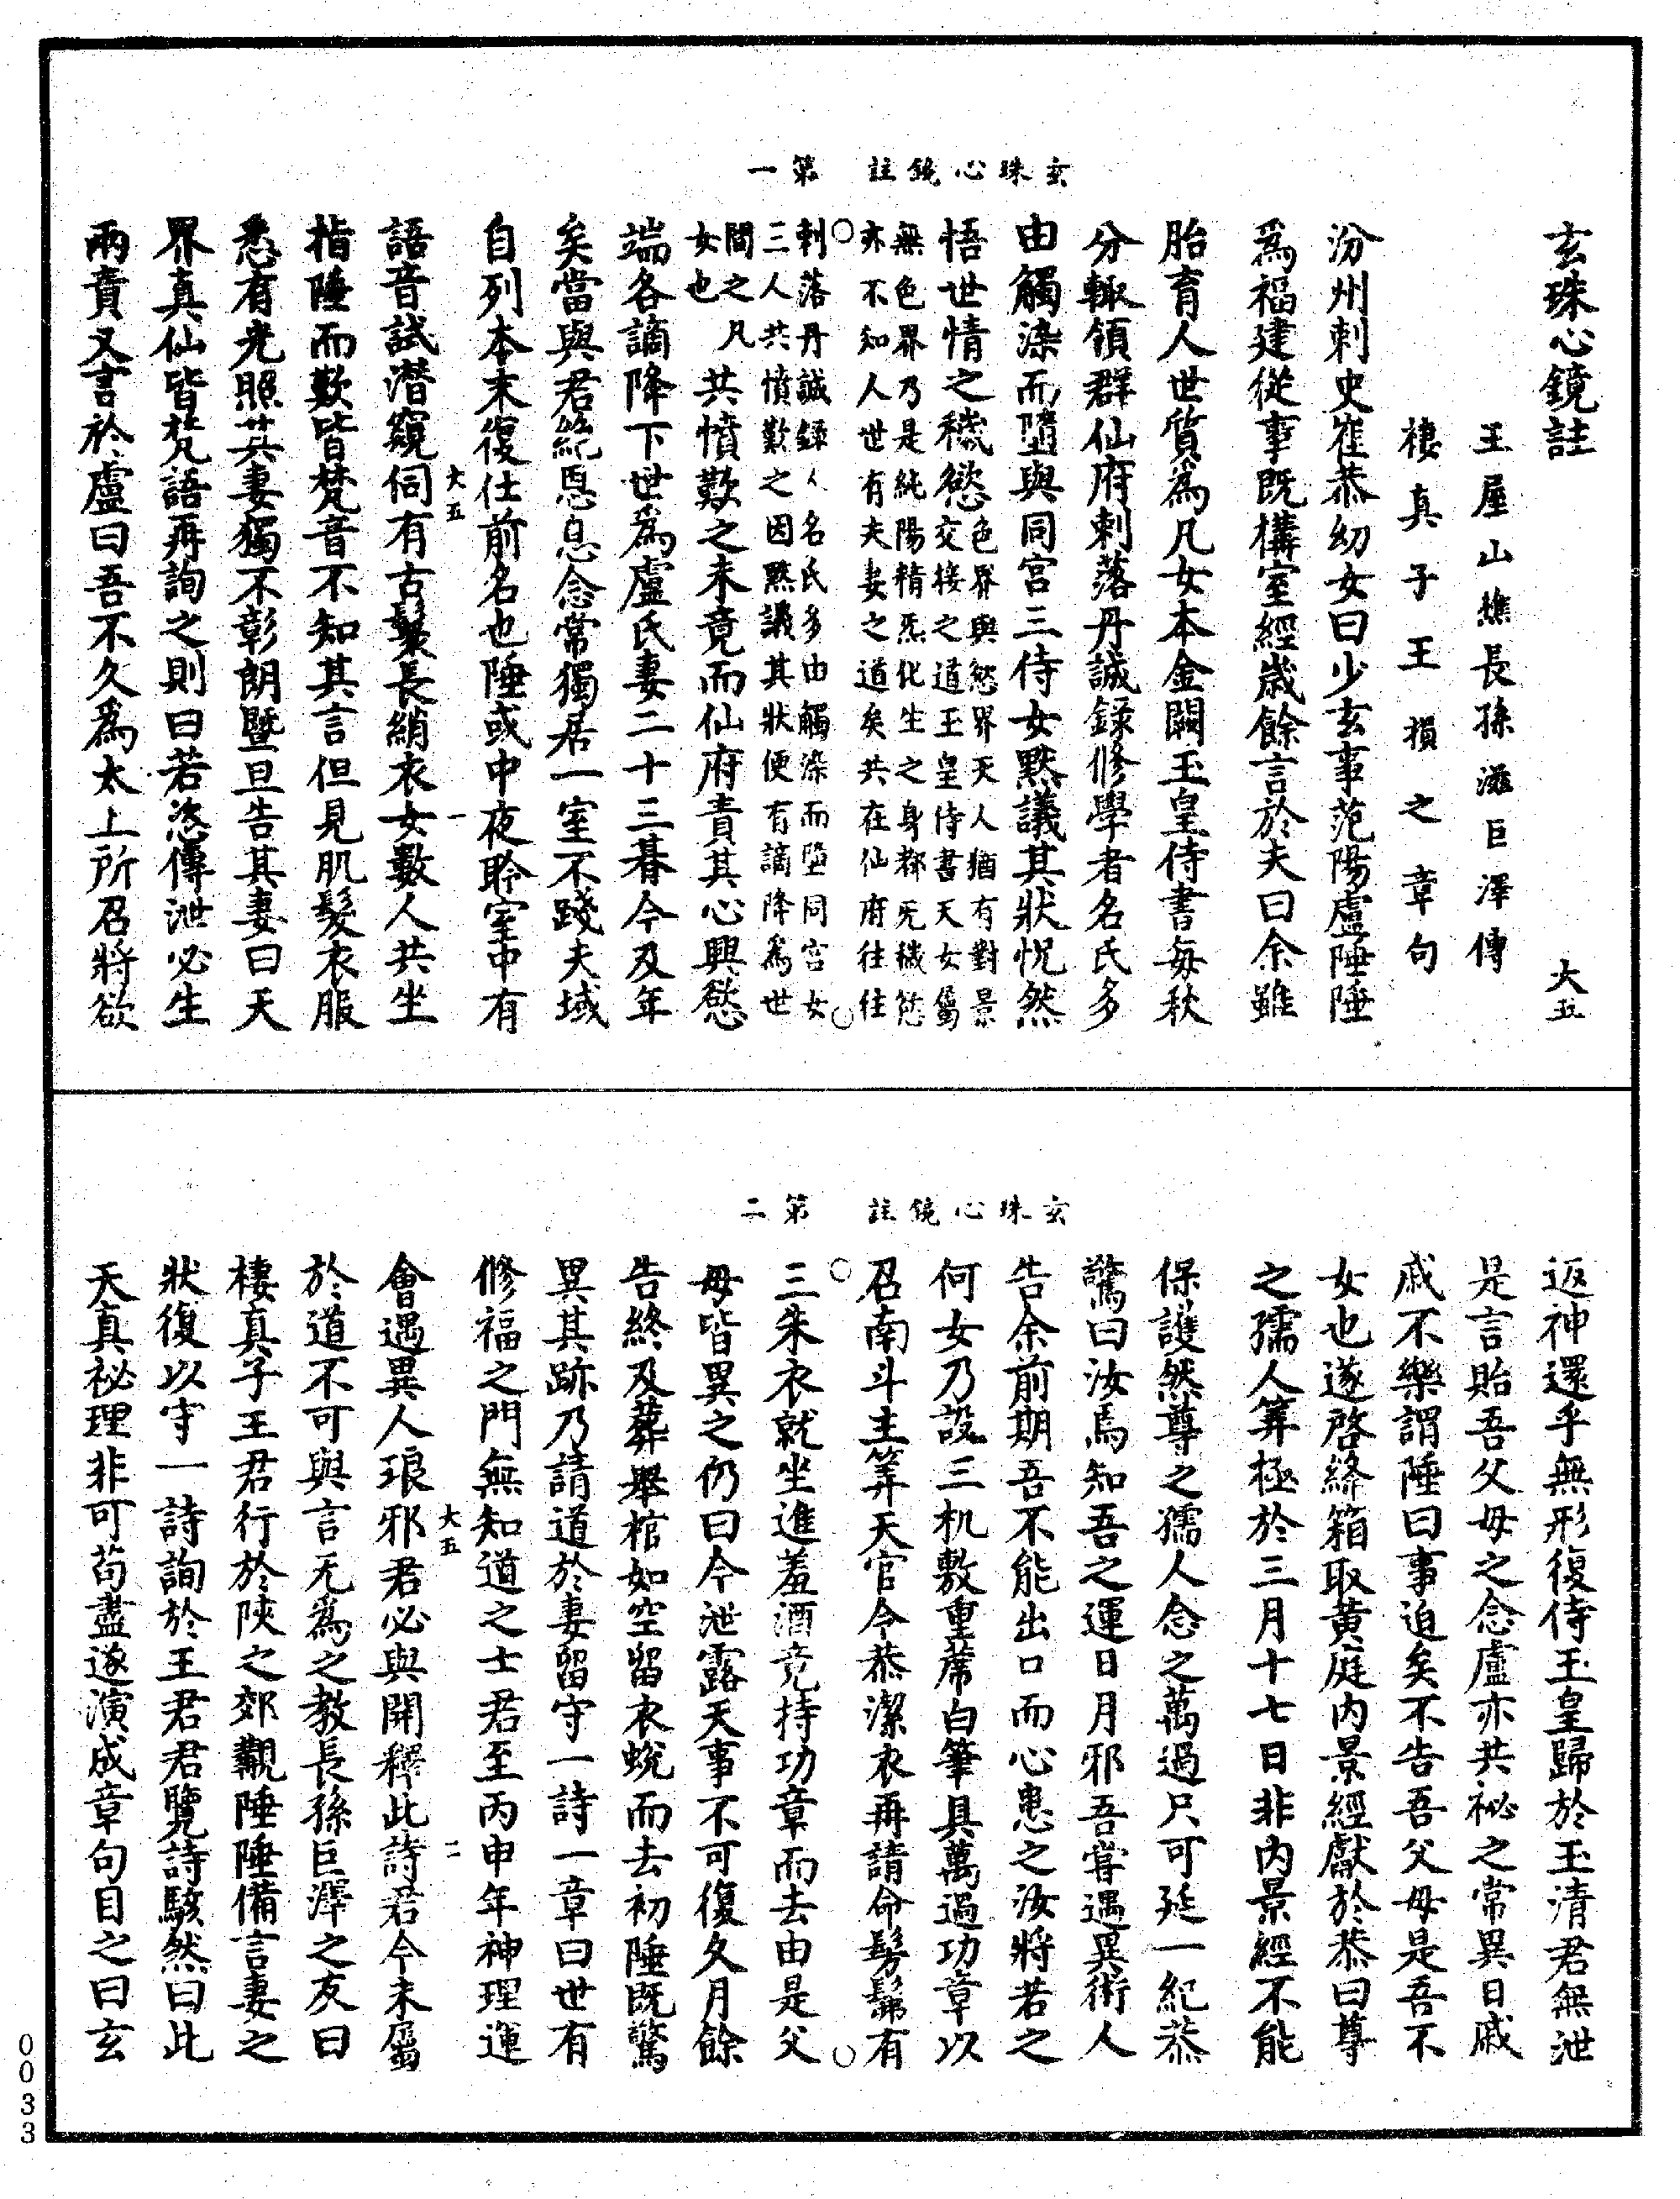 玄珠心鏡註 第一
玄珠心鏡註 大五
王屋山樵長孫滋巨澤傳
棲真子王損之章句
汾州刺史崔恭幼女曰少玄事范陽盧陲陲
為福建從事既構室經歲餘言於夫曰余雖
胎育人世質為凡女本金闕玉皇侍書每秋
分輙領群仙府刺落丹誠錄修學者名氏多
由觸染而墮與同宮三侍女黙議其狀怳然
悟世情之穢慾色界與慾界天人猶有對景
交接之道玉皇侍書天女屬
無色界乃是純陽精炁化生之身都无穢慾
亦不知人世有夫妻之道矣共在仙府往往
○刺落丹誠錄人名氏多由觸染而墮同宮女○
三人共憤歎之因黙議其狀便有謫降為世
間之凡
女也共憤歎之未竟而仙府責其心興慾
端各謫降下世為盧氏妻二十三朞今及年
矣當與君絕恩息念常獨居一室不踐夫域
自列本末復仕前名也陲或中夜聆室中有
大五 一
語音試潛窺伺有古鬟長綃衣女數人共坐
指陲而歎皆梵音不知其言但見肌髮衣服
悉有光照其妻獨不彰朗暨旦告其妻曰天
界真仙皆梵語再詢之則曰若恣傳泄必生
兩責又言於盧曰吾不久為太上所召將欲
玄珠心鏡註 第二
返神還乎無形復侍玉皇歸於玉清君無泄
是言貽吾父母之念盧亦共祕之常異日戚
戚不樂謂陲曰事迫矣不告吾父母是吾不
女也遂啓絳箱取黃庭內景經獻於恭曰尊
之孺人筭極於三月十七日非內景經不能
保護然尊之孺人念之萬過只可延一紀恭
驚曰汝焉知吾之運日月邪吾嘗遇異術人
告余前期吾不能出口而心患之汝將若之
何女乃設三机敷重蓆白筆具萬過功章以
召南斗主筭天官令恭潔衣再請命髣髴有
○三朱衣就坐進羞酒竟持功章而去由是父○
母皆異之仍曰今泄露天事不可復久月餘
告終及葬舉棺如空留衣蛻而去初陲既驚
異其跡乃請道於妻留守一詩一章曰世有
修福之門無知道之士君至丙申年神理運
大五 二
會遇異人琅邪君必與開釋此詩君今未屬
於道不可與言无為之教長孫巨澤之友曰
棲真子王君行於陝之郊覯陲陲備言妻之
狀復以守一詩詢於王君君覽詩駭然曰此
天真祕理非可苟盡遂演成章句目之曰玄
0033